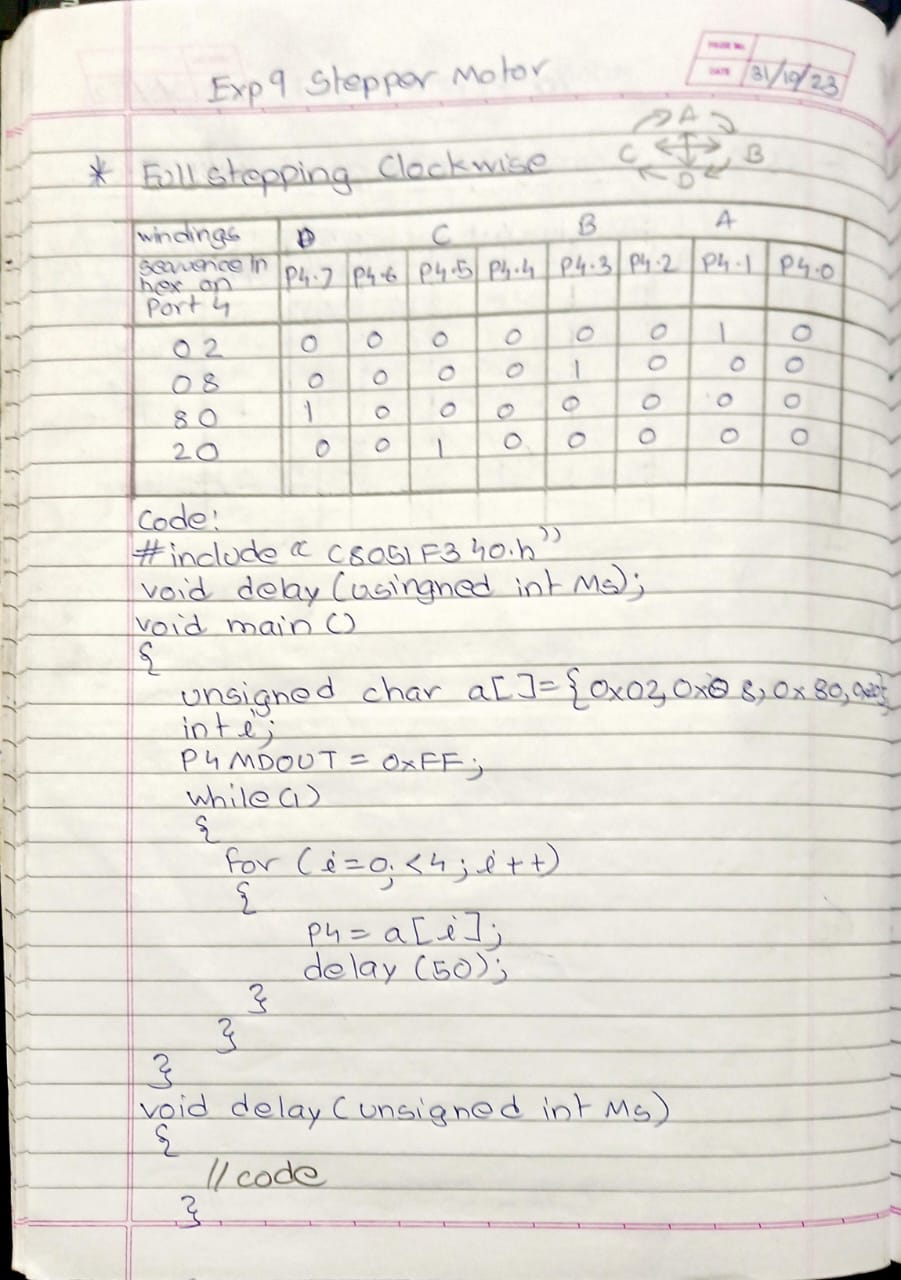 PAGE NO.
DATE 31/10/23
Exp 9 Stepper Motor
A
C B
D
* Full stepping Clockwise
windings D C B A
sequence in hex on Port 4 P4.7 P4.6 P4.5 P4.4 P4.3 P4.2 P4.1 P4.0
02 0 0 0 0 0 0 1 0
08 0 0 0 0 1 0 0 0
80 1 0 0 0 0 0 0 0
20 0 0 1 0 0 0 0 0
Code:
#include "C8051F340.h"
void delay (usingned int Ms);
void main ()
{
unsigned char a[]={0x02,0x08,0x80,0x20};
int i;
P4MDOUT = 0xFF;
while(1)
{
for (i=0; <4; i++)
{
P4 = a[i];
delay (50);
}
}
}
void delay (unsigned int Ms)
{
// code
}